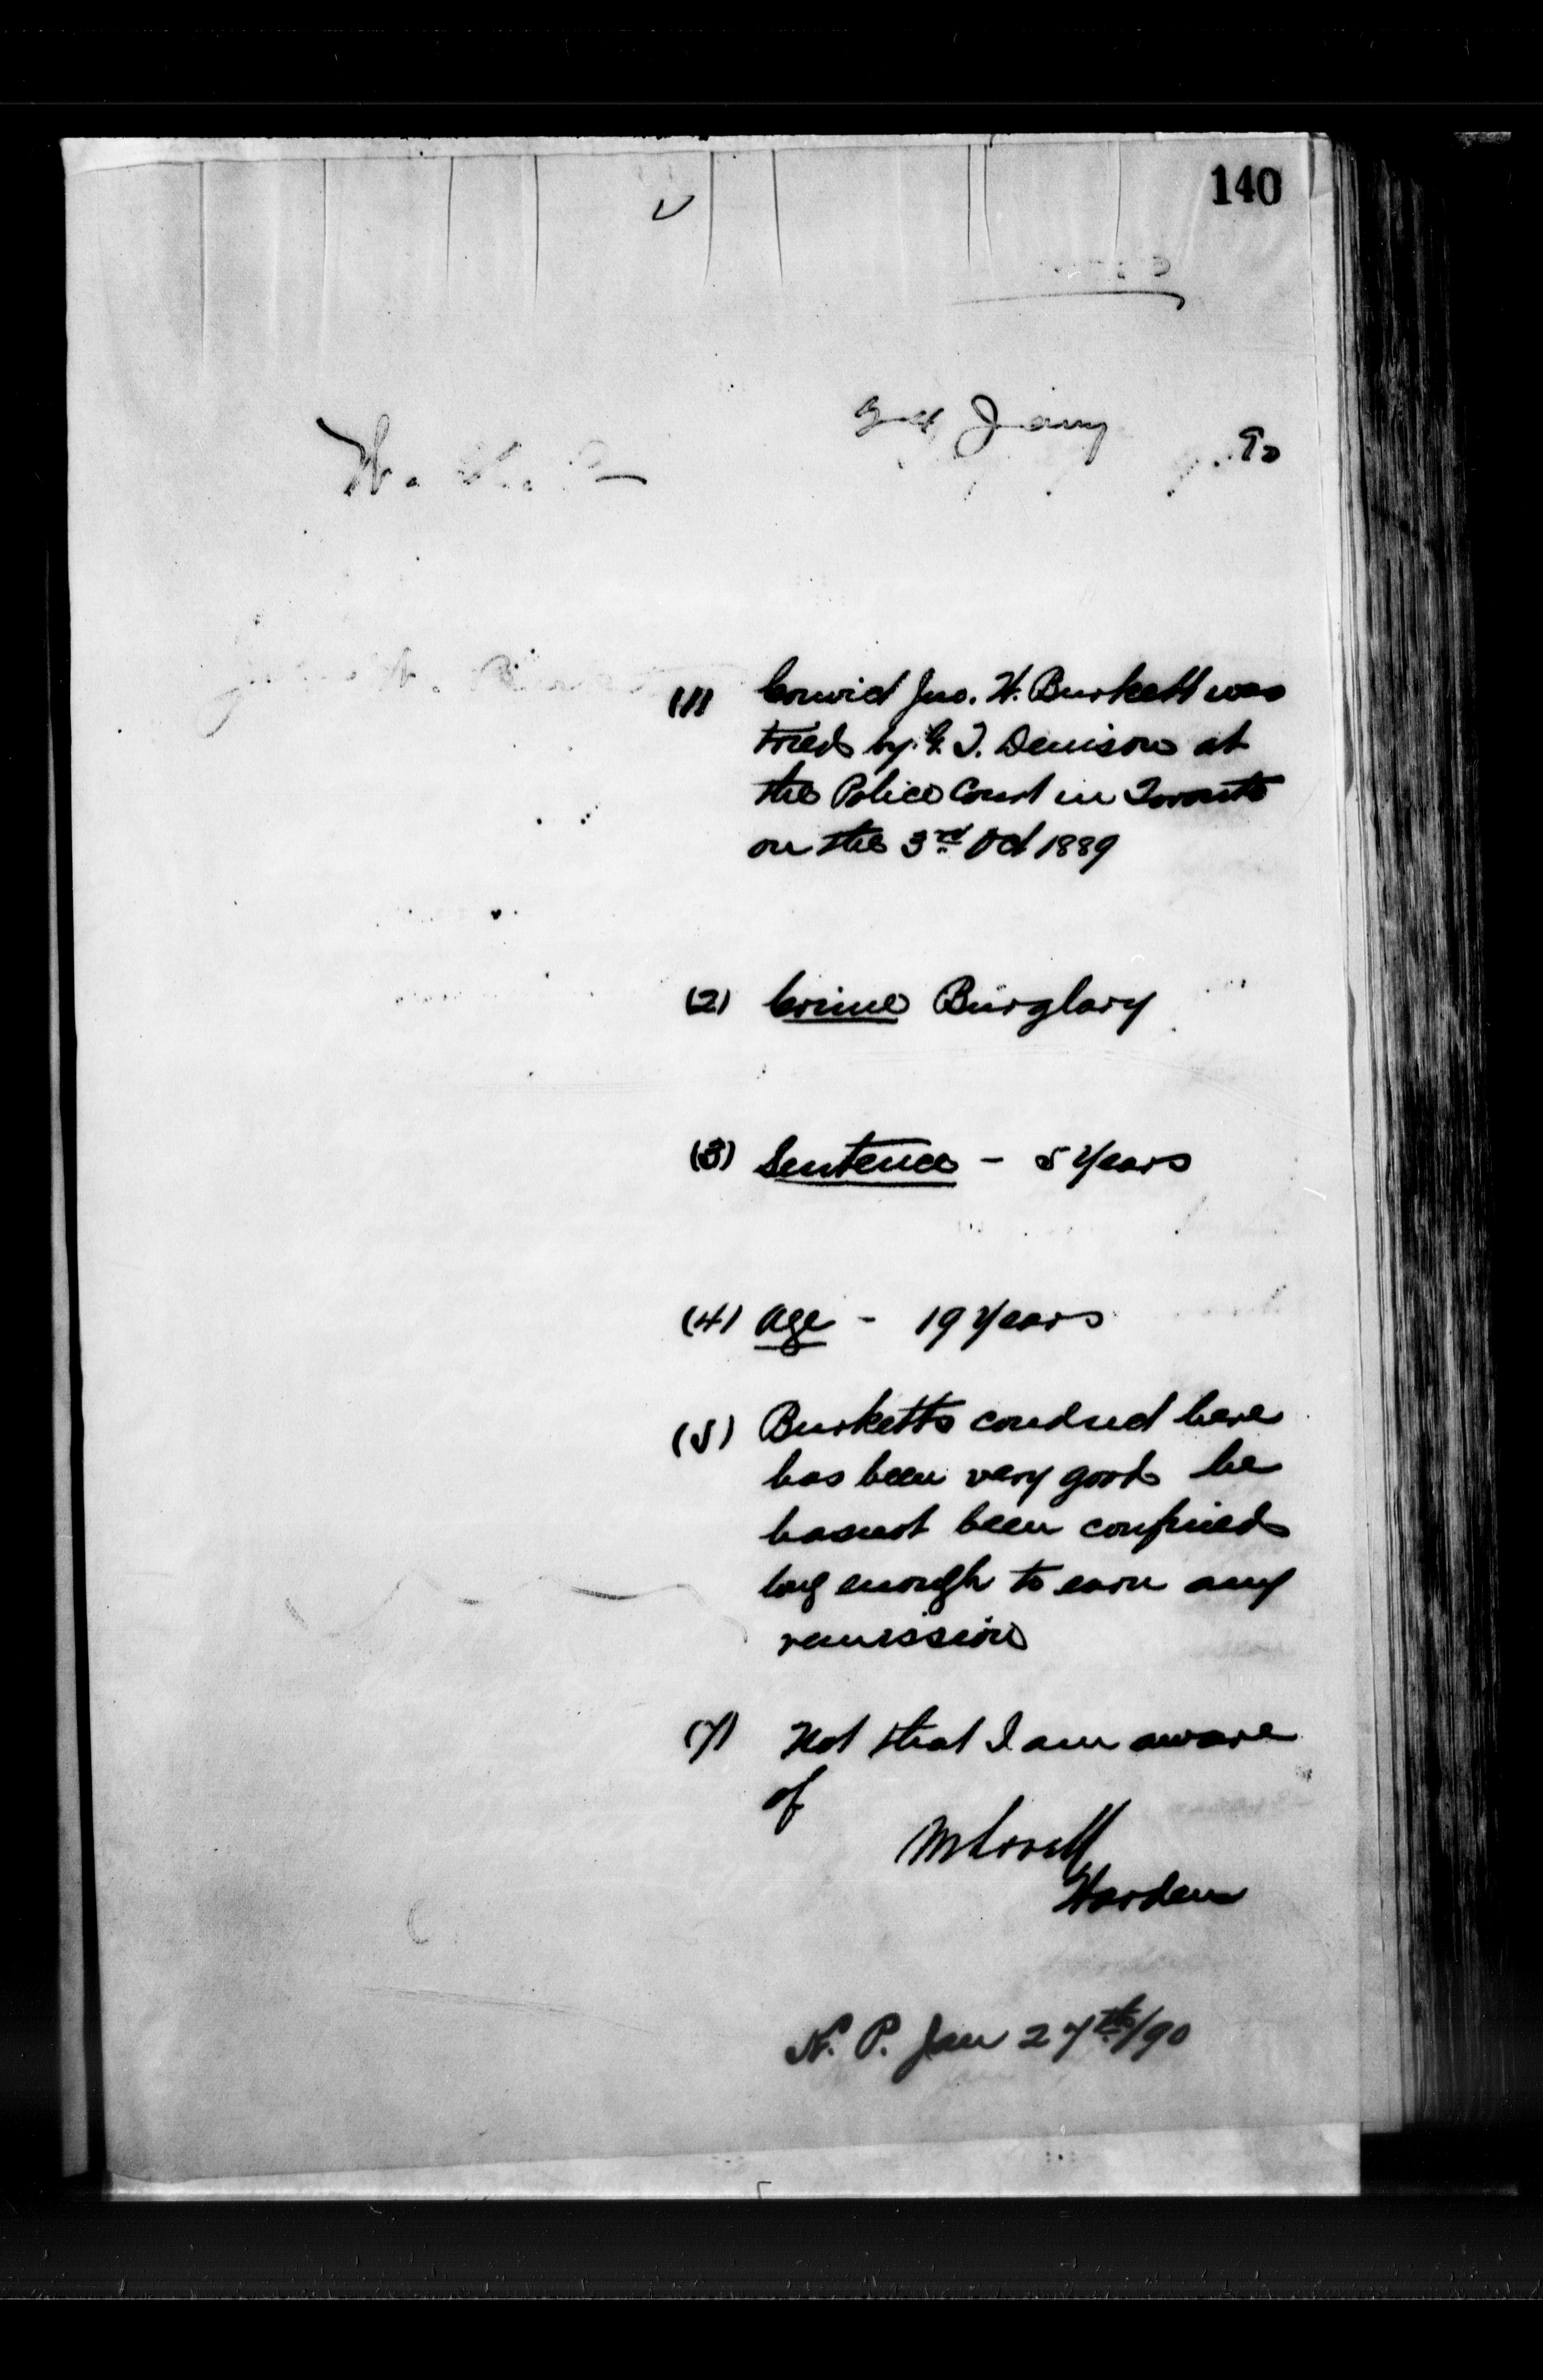 140
24 Jany
90
(1) Convict Jno. H. Burkett was
tried by G. T. Denison at
the Police Court in Toronto
on the 3rd Oct 1889
(2) Crime Burglary
(3) Sentence - 5 Years
(4) Age - 19 Years
(5) Burketts conduct here
has been very good he
has not been confined
long enough to earn any
remission
(7) Not that I am aware
of
M Lavell
Warden
K. P. Jan 27th/90